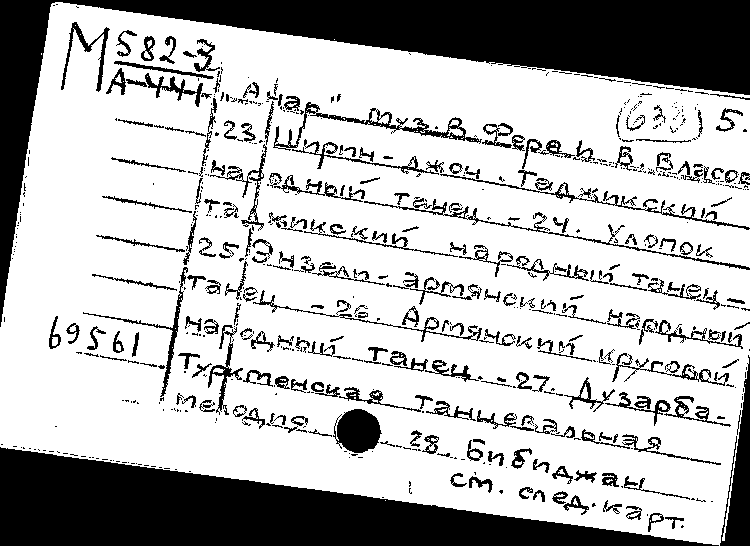 М 582-3
А-441
(633) 5.
„Анар" муз. В. Фере и В. Власов
23. Ширин-джон. Таджикский
народный танец. - 24. Хлопок
таджикский народный танец -
25. Энзели - армянский народный
танец - 26. Армянский круговой
народный танец. - 27. Дузарба-
Туркменская танцевальная
мелодия. 28. Бибиджан
см. след. карт.
69561